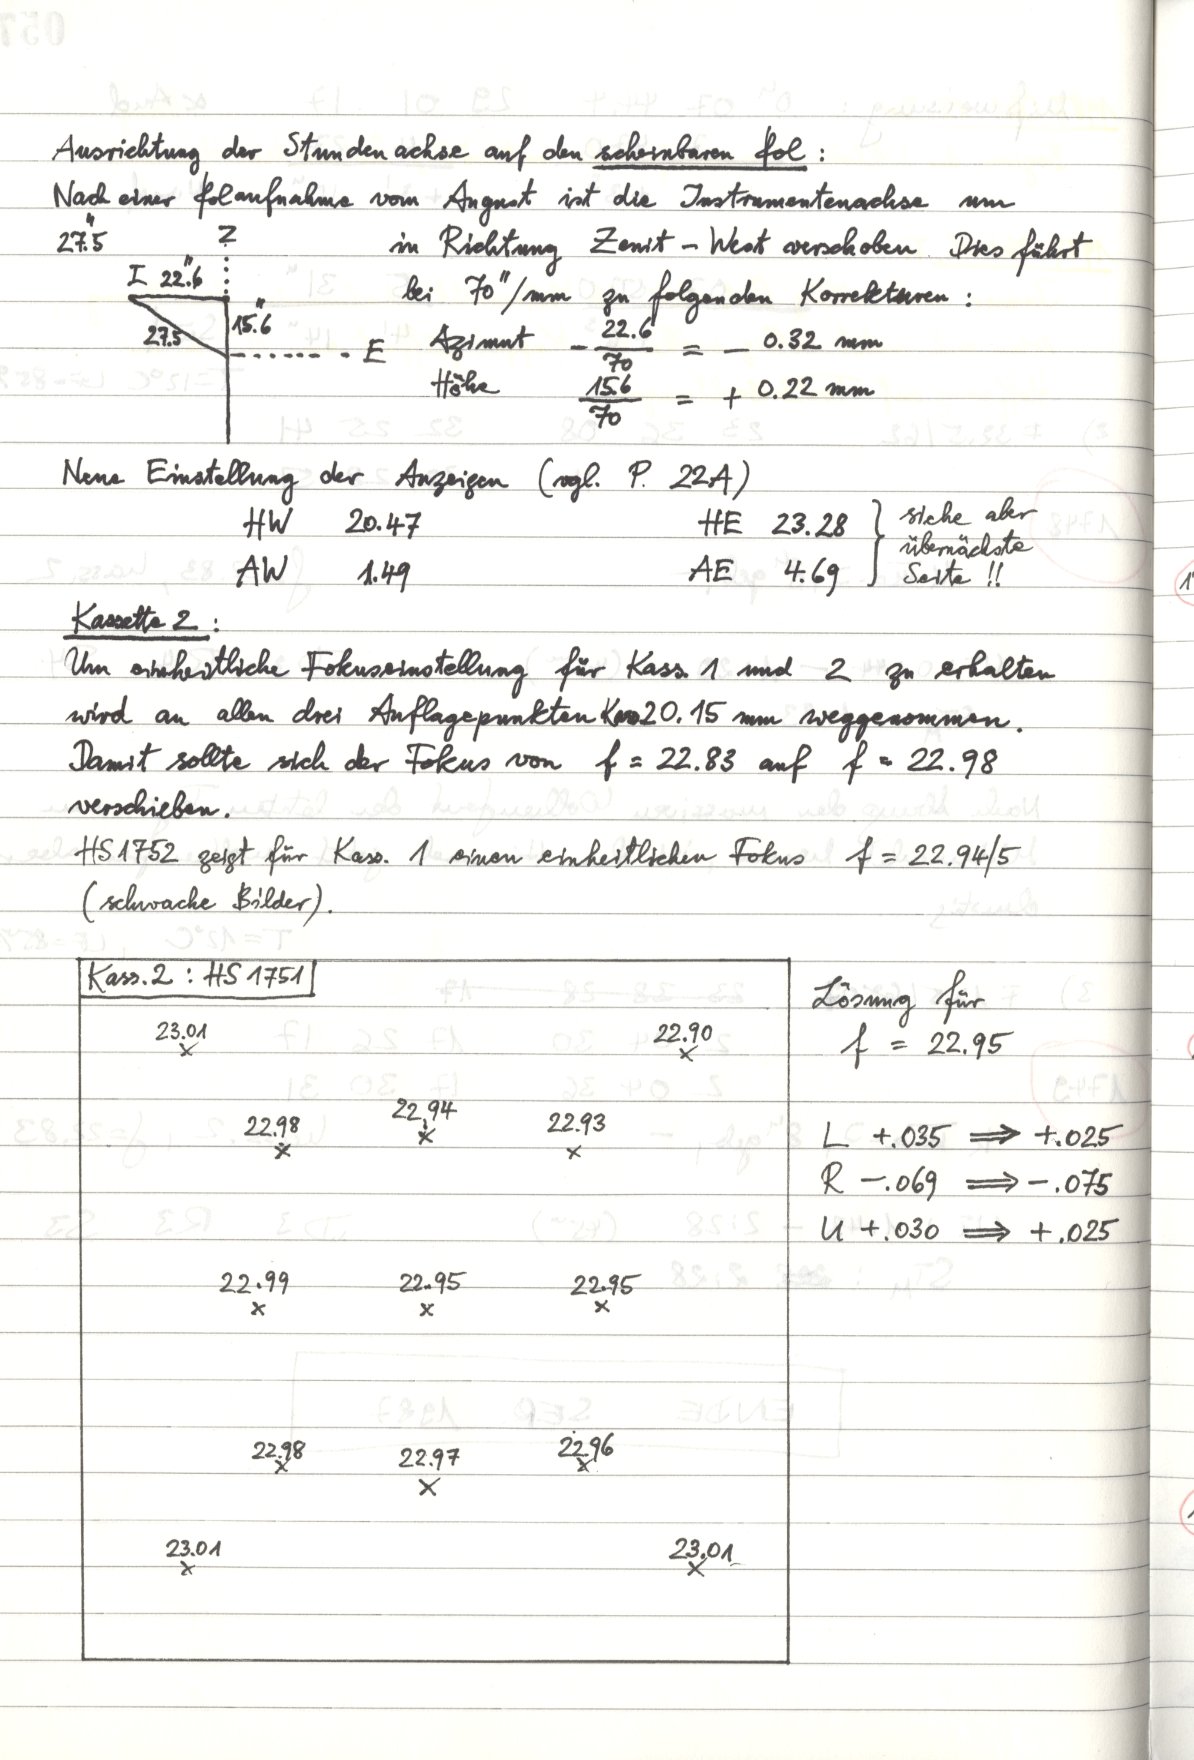 Ausrichtung der Stundenachse auf den scheinbaren Pol :
Nach einer Polaufnahme vom August ist die Instrumentenachse um
27".5 in Richtung Zenit – West verschoben. Dies führt
bei 70"/mm zu folgenden Korrekturen :
Z
I 22".6
15".6
27.5
E
Azimut - 22.6/70 = - 0.32 mm
Höhe 15.6/70 = + 0.22 mm
Neue Einstellung der Anzeigen (vgl. P. 22A)
HW 20.47 HE 23.28 } siehe aber
übernächste
AW 1.49 AE 4.69 Seite !!
Kassette 2 :
Um einheitliche Fokuseinstellung für Kass. 1 und 2 zu erhalten
wird an allen drei Auflagepunkten 0.15 mm weggenommen.
Damit sollte sich der Fokus von f = 22.83 auf f = 22.98
verschieben.
HS1752 zeigt für Kass. 1 einen einheitlichen Fokus f = 22.94/5
(schwache Bilder).
Kass. 2 : HS 1751
23.01 22.90
22.98 22.94 22.93
22.99 22.95 22.95
22.98 22.97 22.96
23.01 23.01
Lösung für
f = 22.95
L +.035 ⟹ +.025
R -.069 ⟹ -.075
U +.030 ⟹ +.025